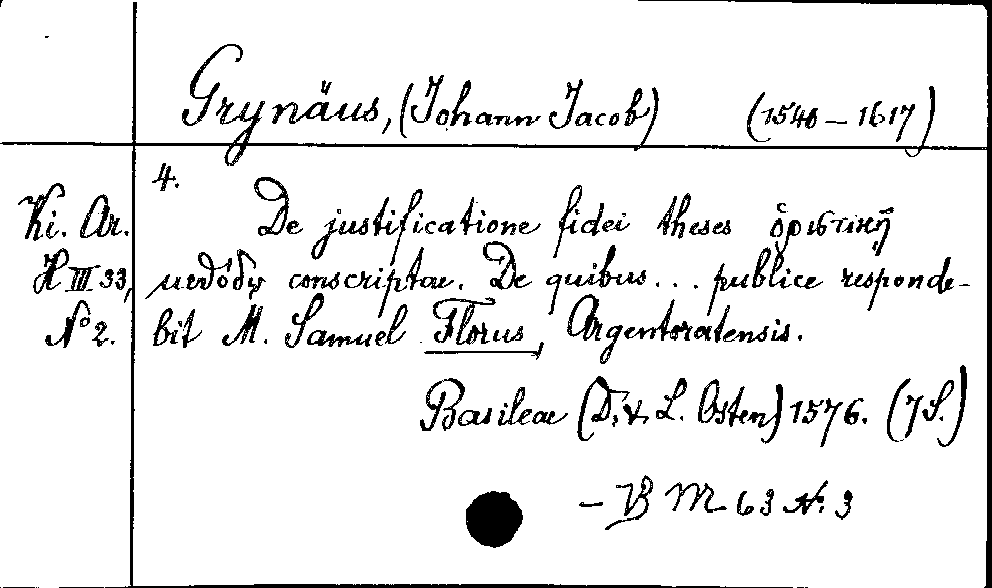 Grynäus, (Johann Jacob) (1540–1617)
4.
Ki. Ar. De justificatione fidei theses ὁριστικῇ
H III 33, μεθόδῳ conscriptae. De quibus... publice responde-
No 2. bit M. Samuel Florus, Argentoratensis.
Basileae (D. & L. Osten) 1576. (7 S.)
– B M 63 N. 3